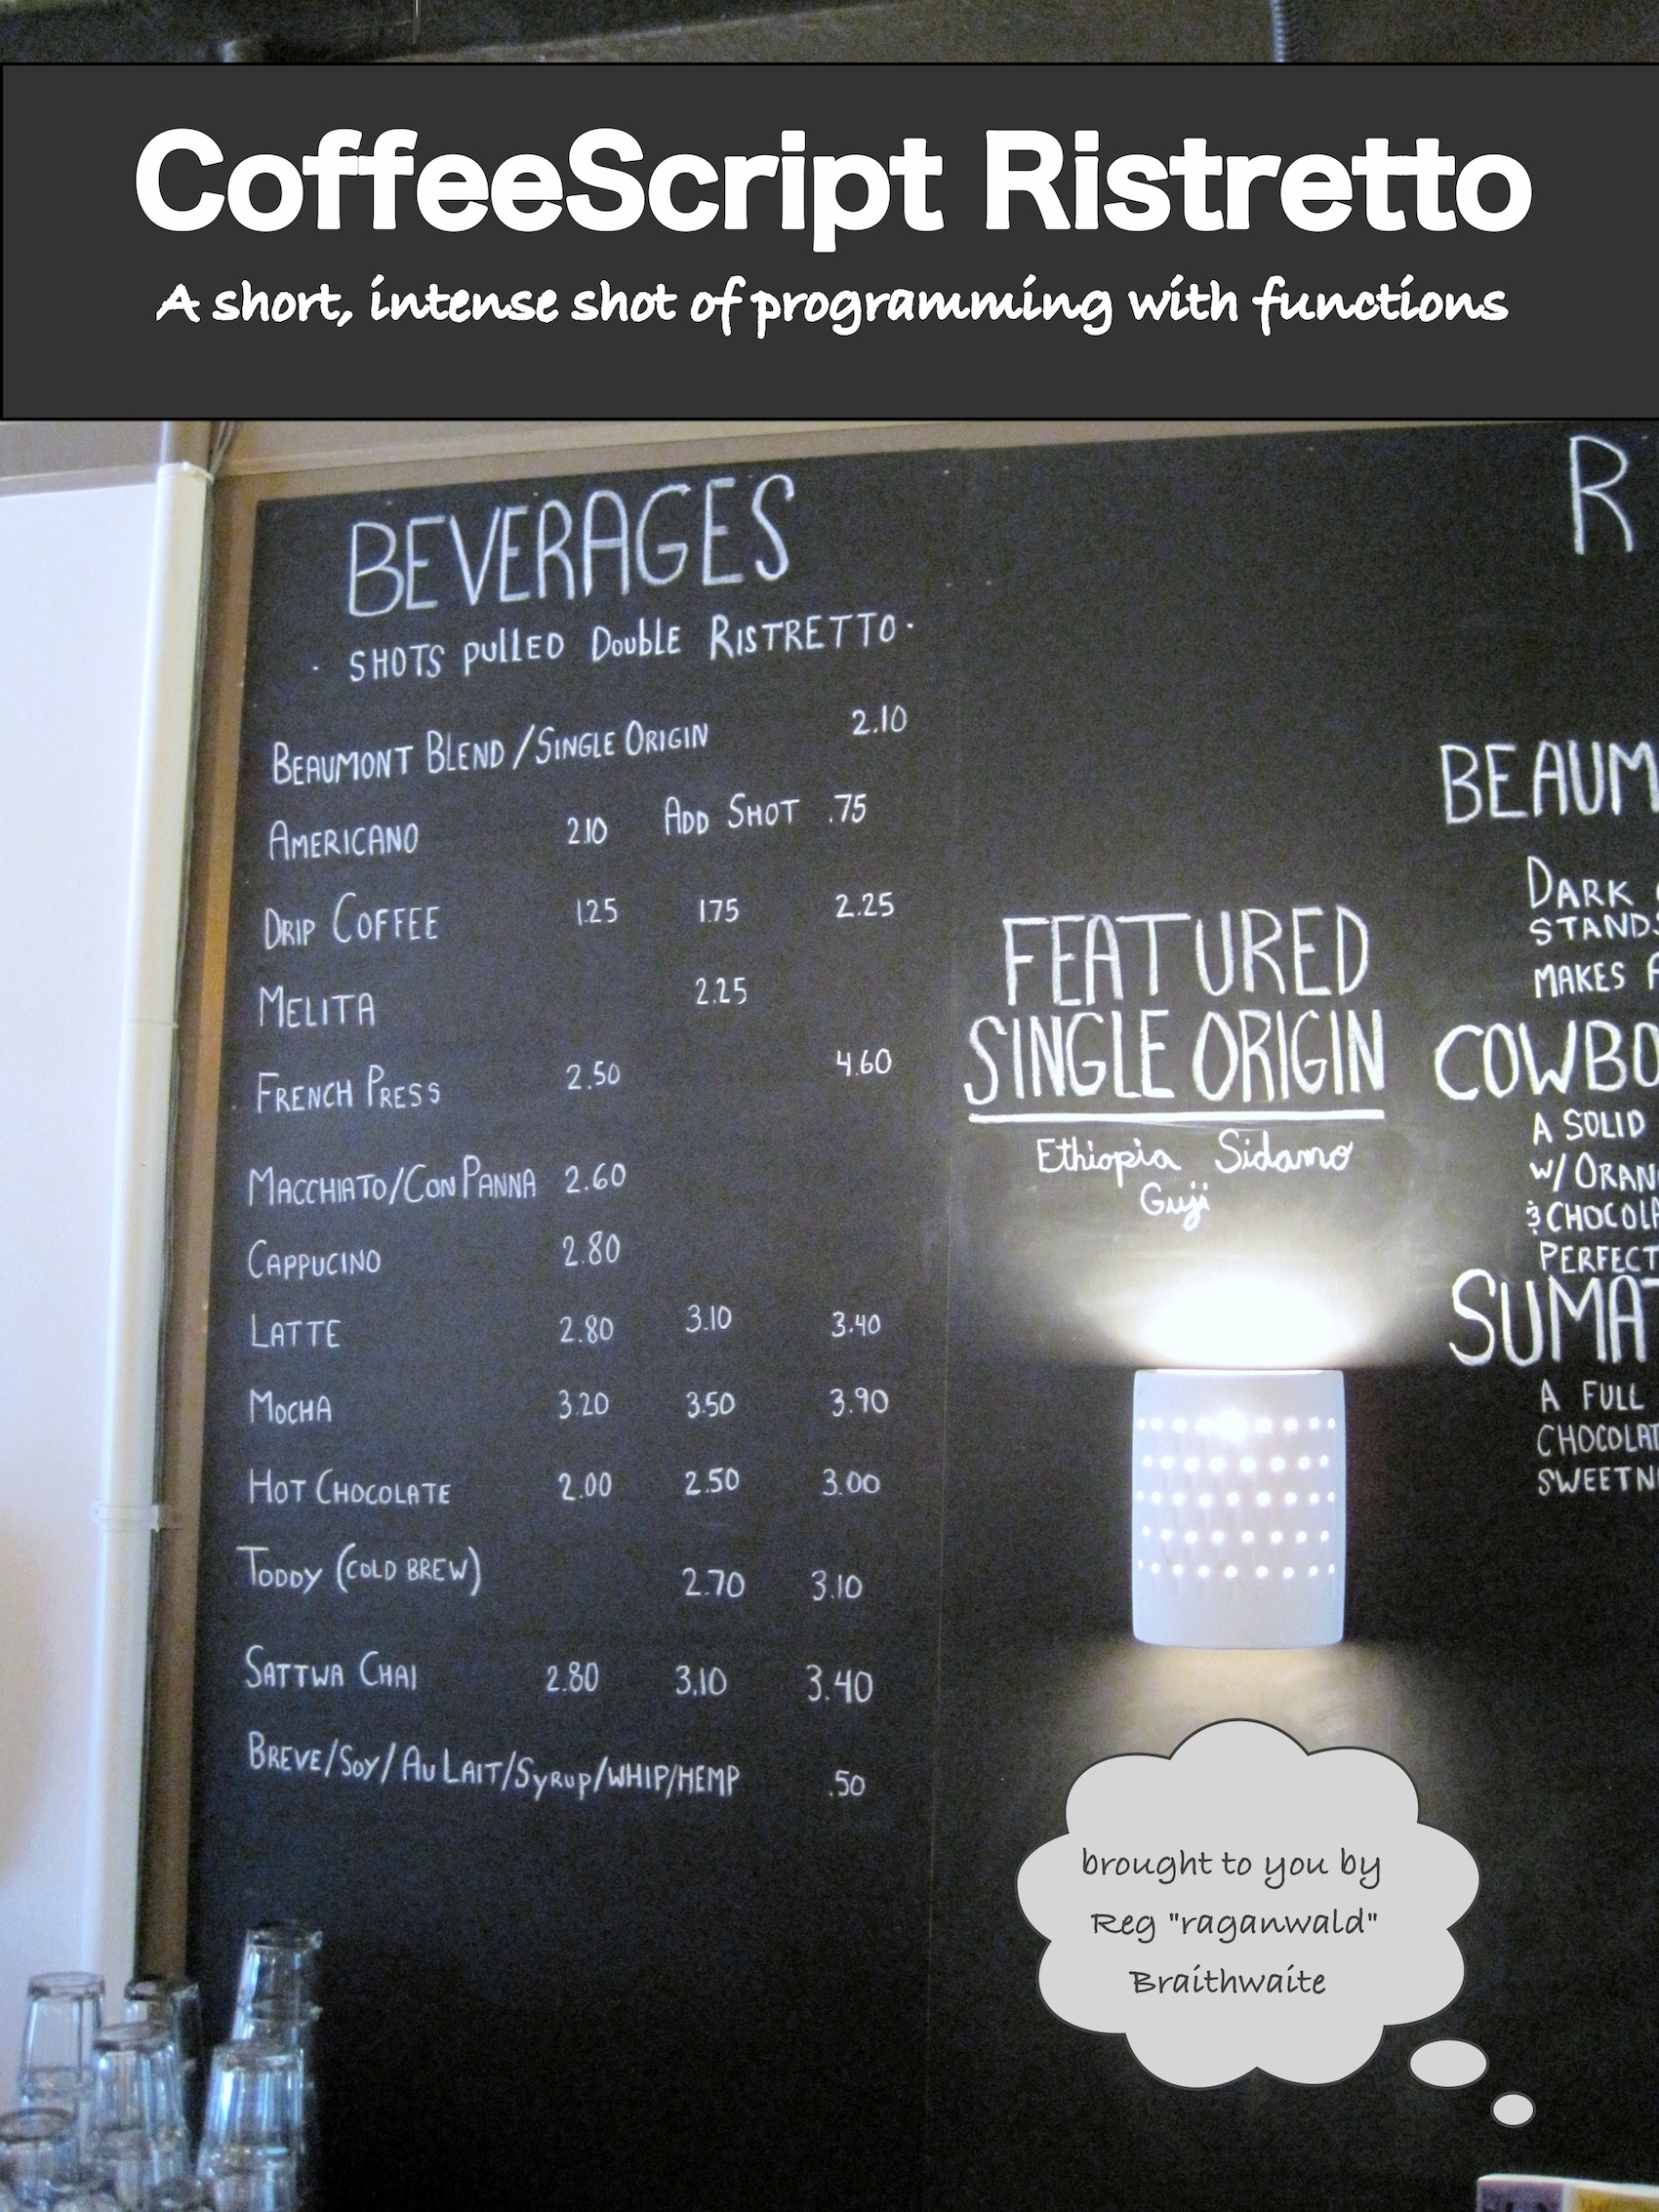 CoffeeScript Ristretto
A short, intense shot of programming with functions
BEVERAGES
· SHOTS PULLED DOUBLE RISTRETTO ·
BEAUMONT BLEND/SINGLE ORIGIN 2.10
AMERICANO 2.10 ADD SHOT .75
DRIP COFFEE 1.25 1.75 2.25
MELITA 2.25
FRENCH PRESS 2.50 4.60
MACCHIATO/CON PANNA 2.60
CAPPUCINO 2.80
LATTE 2.80 3.10 3.40
MOCHA 3.20 3.50 3.90
HOT CHOCOLATE 2.00 2.50 3.00
TODDY (COLD BREW) 2.70 3.10
SATTWA CHAI 2.80 3.10 3.40
BREVE/SOY/AU LAIT/SYRUP/WHIP/HEMP .50
FEATURED
SINGLE ORIGIN
Ethiopia Sidamo
Guji
R
BEAUM
DARK
STANDS
MAKES
COWBO
A SOLID
W/ ORAN
& CHOCOLA
PERFECT
SUMAT
A FULL
CHOCOLAT
SWEETN
brought to you by
Reg "raganwald"
Braithwaite